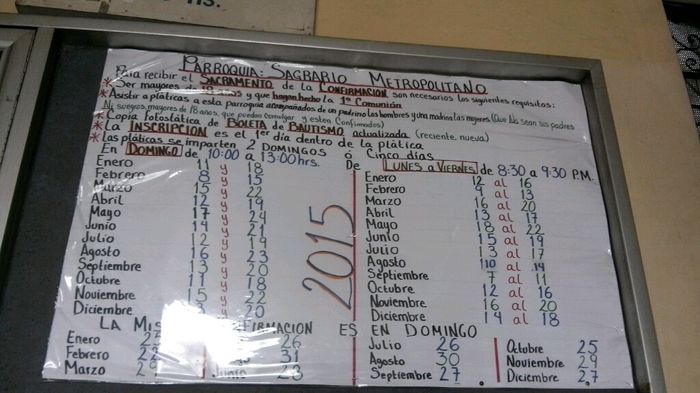 HS.
PARROQUIA: SAGRARIO METROPOLITANO
Para recibir el SACRAMENTO de la CONFIRMACION son necesarios los siguientes requisitos:
*Ser mayores de y que hagan hecho la 1ª Comunión
*Asistir a pláticas a esta parroquia acompañados de un padrino los hombres y una madrina las mujeres (Que NO sean sus padres
Ni suegos, mayores de 18 años, que puedan comulgar y esten Confirmados)
*Copia Fotostática de BOLETA de BAUTISMO actualizada (reciente nueva)
*La INSCRIPCION es el 1er día dentro de la plática
*las pláticas se imparten 2 DOMINGOS ó Cinco días
En DOMINGO de 10:00 a 13:00 hrs.
Enero 11 y 18
Febrero 8 y 15
Marzo 15 y 22
Abril 12 y 19
Mayo 17 y 24
Junio 14 y 21
Julio 12 y 19
Agosto 16 y 23
Septiembre 13 y 20
Octubre 11 y 18
Noviembre 15 y 22
Diciembre 13 y 20
2015
De LUNES a VIERNES de 8:30 a 9:30 P.M.
Enero 12 al 16
Febrero 9 al 13
Marzo 16 al 20
Abril 13 al 17
Mayo 18 al 22
Junio 15 al 19
Julio 13 al 17
Agosto 10 al 14
Septiembre 7 al 11
Octubre 12 al 16
Noviembre 16 al 20
Diciembre 14 al 18
LA ES EN DOMINGO
Enero 25
Febrero
Marzo 29
26
31
Junio 28
Julio 26
Agosto 30
Septiembre 27.
Octubre 25
Noviembre 29
Diciembre 2,7